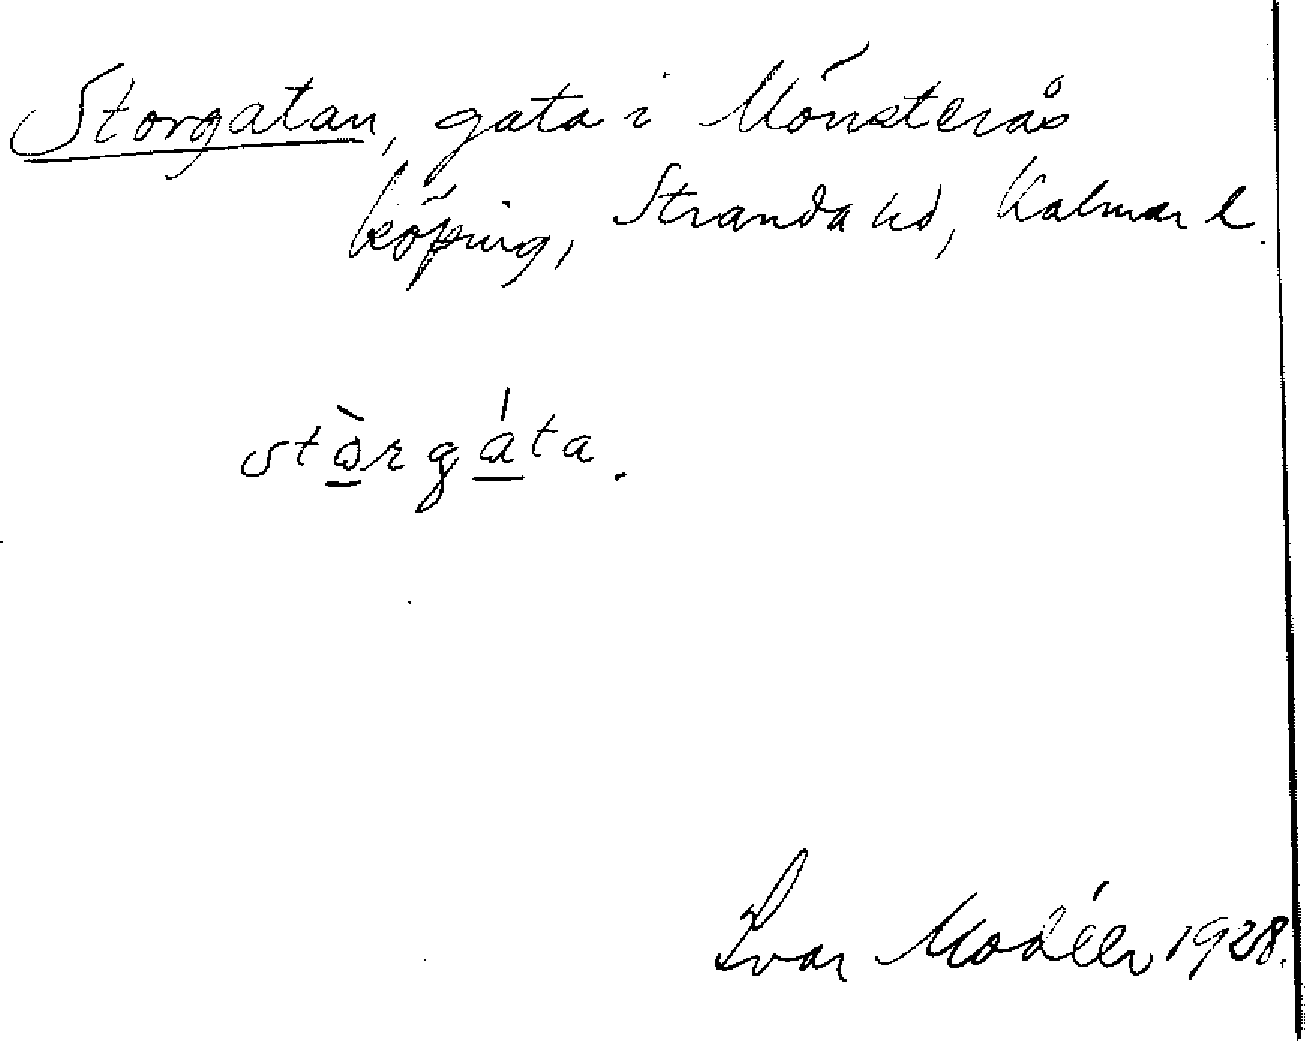 Storgatan, gata i Mönsterås
köping, Stranda hd, Kalmar l.
stòrgáta.
Ivar Modéer 1928.